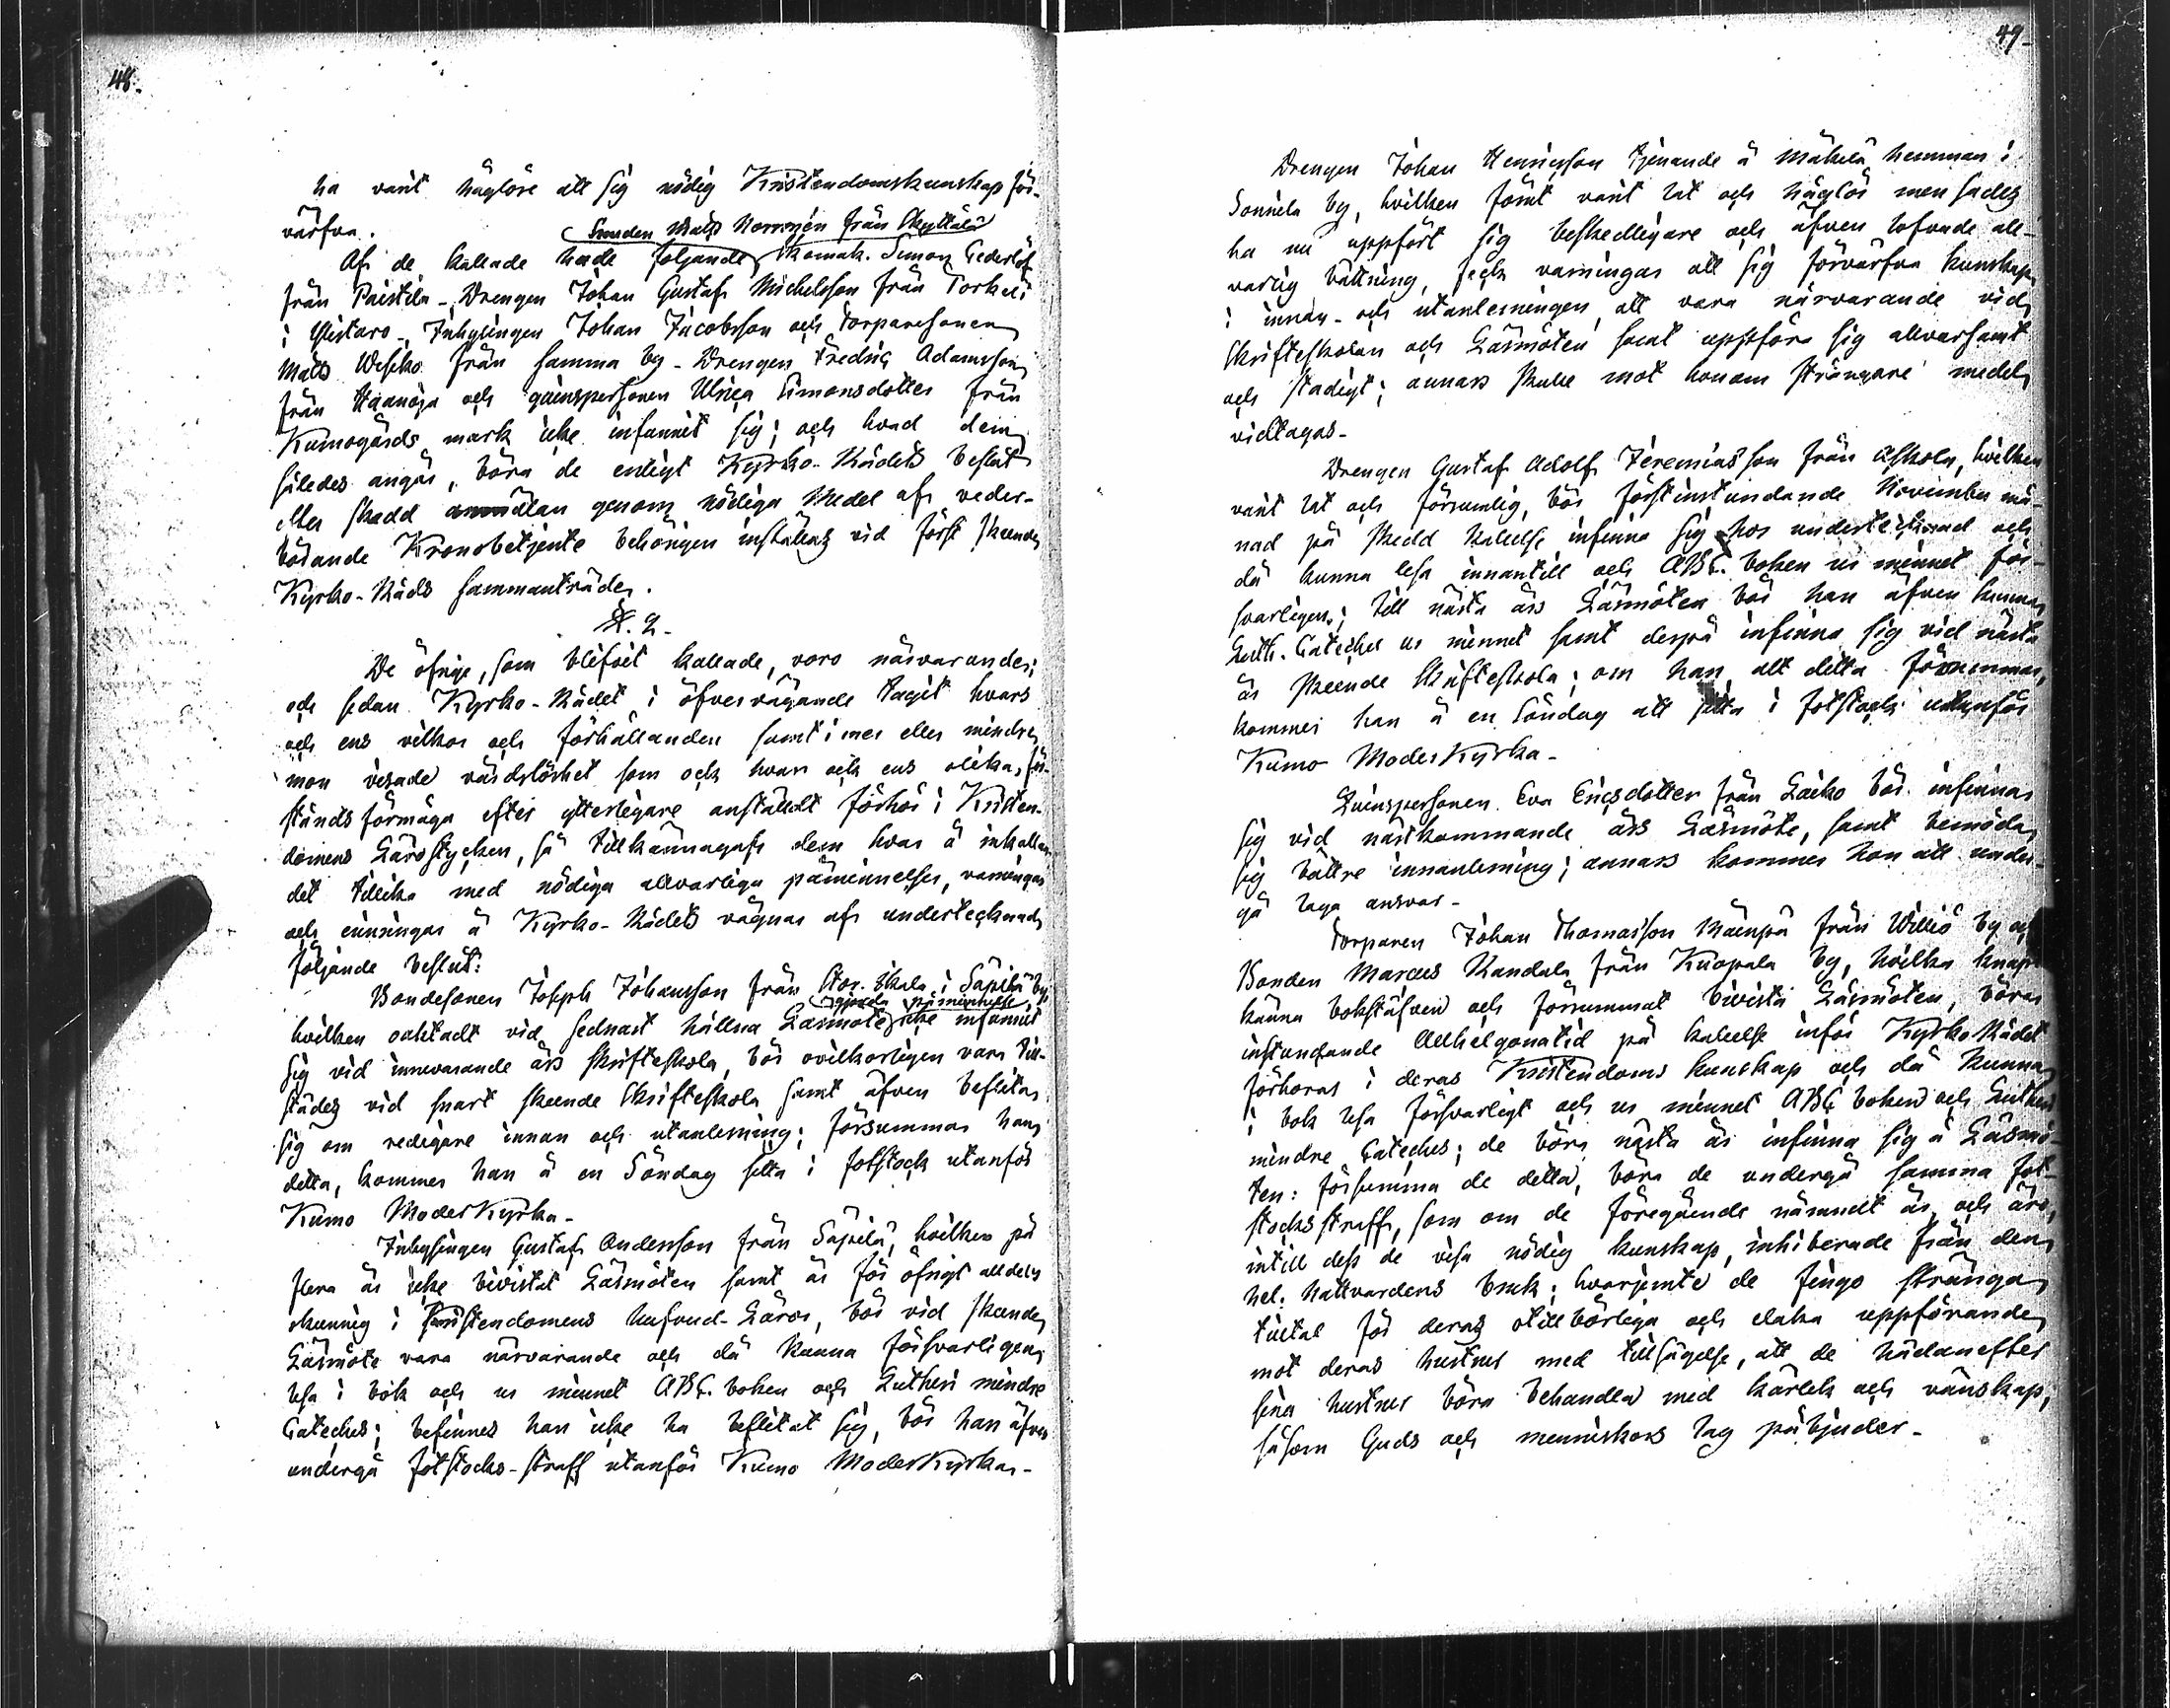 48.
ha varit håglöse att sig nödig Kristendomskunskap för-
värfva.
Smeden Matts Norrgrén från Skyttälä
Af de kallade hade följande Skomak. Simon Cederlöf
från Paistila - Drengen Johan Gustaf Michelsson från Torkki
i Ylistaro - Inhysingen Johan Jacobsson och Torparesonen
Matts Wesiko från samma by - Drengen Fredric Adamsson
från Haanoja och qvinspersonen Ulrica Simonsdotter från
Kumogårds mark icke infunnit sig; och hvad dem
således angår, böra de enligt Kyrko-Rådets beslut
efter skedd anmälan genom nödiga Medel af veder-
börande Kronobetjente behörigen inställas vid först skeende
Kyrko-Råds sammanträde.
§. 2.
De öfrige, som blifvit kallade, voro närvarande;
och sedan Kyrko-Rådet i öfvervägande tagit hvars
och ens vilkor och förhållanden samt i mer eller mindre
mon visade vårdslöshet som ock hvars och ens olika för-
stånds förmåga efter ytterligare anstäldt förhör i Kristen-
domens Lärostycken, så tillkännagafs dem hvar å inkallan-
det tillika med nödiga allvarliga påminnelser, varningar
och erinringar å Kyrko-Rådets vägnar af undertecknad
följande beslut:
Bondesonen Joseph Johansson från Stor-Skala i Säpilä by,
gjorda påminnelse
hvilken oaktadt vid sednast hållna Läsmöte icke infunnit
sig vid innevarande års skrifteskola, bör ovilkorligen vara till-
städes vid snart skeende Skrifteskola samt äfven beflita
sig om redigare innan och utanlesning; försummar han
detta, kommer han å en Söndag sitta i fotstock utanför
Kumo ModerKyrka.-
Inhysingen Gustaf Andersson från Säpilä, hvilken på
flera år icke bivistat Läsmöten samt är för öfrigt alldeles
okunnig i Kristendomens hufvud-Läror, bör vid skeende
Läsmöte vara närvarande och då kunna försvarligen
läsa i bok och ur minnet ABC. boken och Lutheri mindre
Cateches; befinnes han icke ha beflitat sig, bör han äfven
undergå fotstocks-straff utanför Kumo ModerKyrka.-
49-
Drengen Johan Henricsson tjenande å Mäkilä hemman i
Sonnila by, hvilken förut varit lat och håglös men sades
ha nu uppfört sig beskedligare och äfven lofvade all-
varlig bättring, fick varningar att sig förvärfva kunskap
i innan- och utanlesningen, att vara närvarande vid
Skrifteskolan och Läsmöten samt uppföra sig allvarsamt
och stadigt; annars skulle mot honom strängare medel
vidtagas.-
Drengen Gustaf Adolf Jeremiasson från Askola, hvilken
varit lat och försumlig, bör förstinstundande November må-
nad på skedd kallelse infinna sig hos undertecknad och
då kunna läsa innantill och ABC. boken ur minnet för-
svarligen; till nästa års Läsmöten bör han äfven kunna
Luth. Cateches ur minnet samt derpå infinna sig vid nästa
år skeende Skrifteskola; om han allt detta försummar,
kommer han å en Söndag att sitta i fotstock utanför
Kumo ModerKyrka.-
Qvinspersonen Eva Ericsdotter från Laiko bör infinna
sig vid nästkommande års Läsmöte, samt bemöda
sig bättre innanlesning; annars kommer hon att under-
gå laga ansvar.-
Torparen Johan Thomasson Mäenpä från Williö by och
Bonden Marcus Kandala från Kuopala by, hvilka knapt
känna bokstäfven och försummat bivista Läsmöten, böra
instundande Allhelgonatid på kallelse inför Kyrko-Rådet
förhöras i deras Kristendoms kunskap och då kunna
i bok läsa försvarligt och ur minnet ABC boken och Lutheri
mindre Cateches; de böra nästa år infinna sig å Läsmö-
ten: försumma de detta, böra de undergå samma fot-
stocks straff, som om de föregående nämndt är, och äro,
intill dess de visa nödig kunskap, inhiberade från den
hel. Nattvardens bruk; hvarjemte de fingo stränga
tiltal för deras otillbörliga och elaka uppförande
mot deras hustrur med tillsägelse, att de hädanefter
sina hustrur böra behandla med kärlek och vänskap,
såsom Guds och menniskors lag påbjuder.-